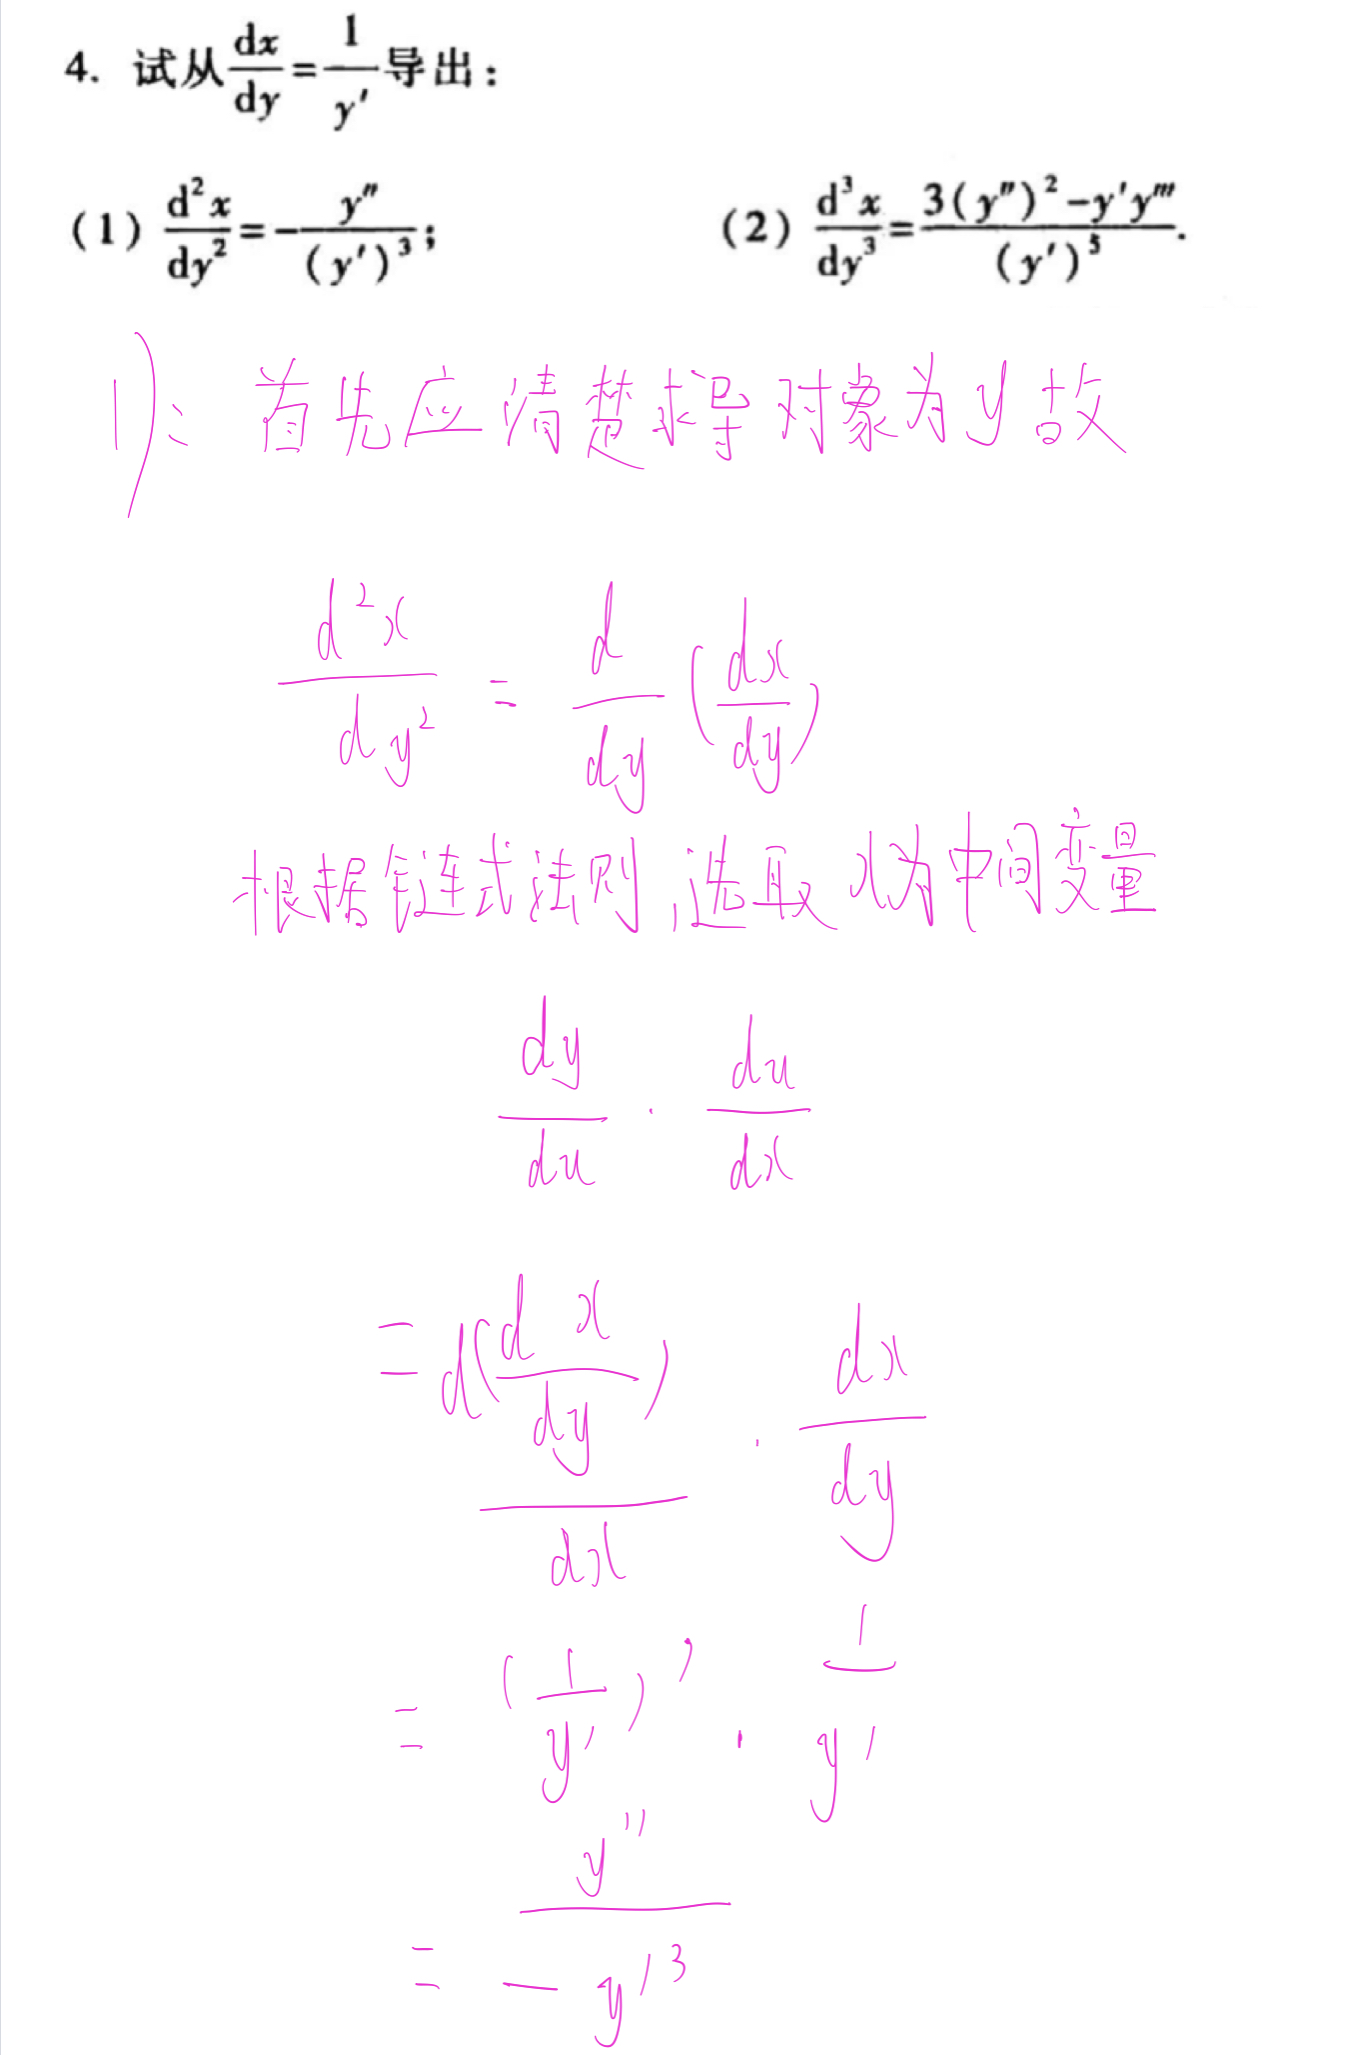 4. 试从dx/dy=1/y′导出：
(1) d²x/dy²=-y″/(y′)³; (2) d³x/dy³=3(y″)²-y′y‴/(y′)⁵.
1): 首先应清楚求导对象为y故
d²x/dy² = d/dy(dx/dy)
根据链式法则,选取x为中间变量
dy/du · du/dx
= d(dx/dy)/dx · dx/dy
= (1/y′)′ · 1/y′
= y″/-y′³